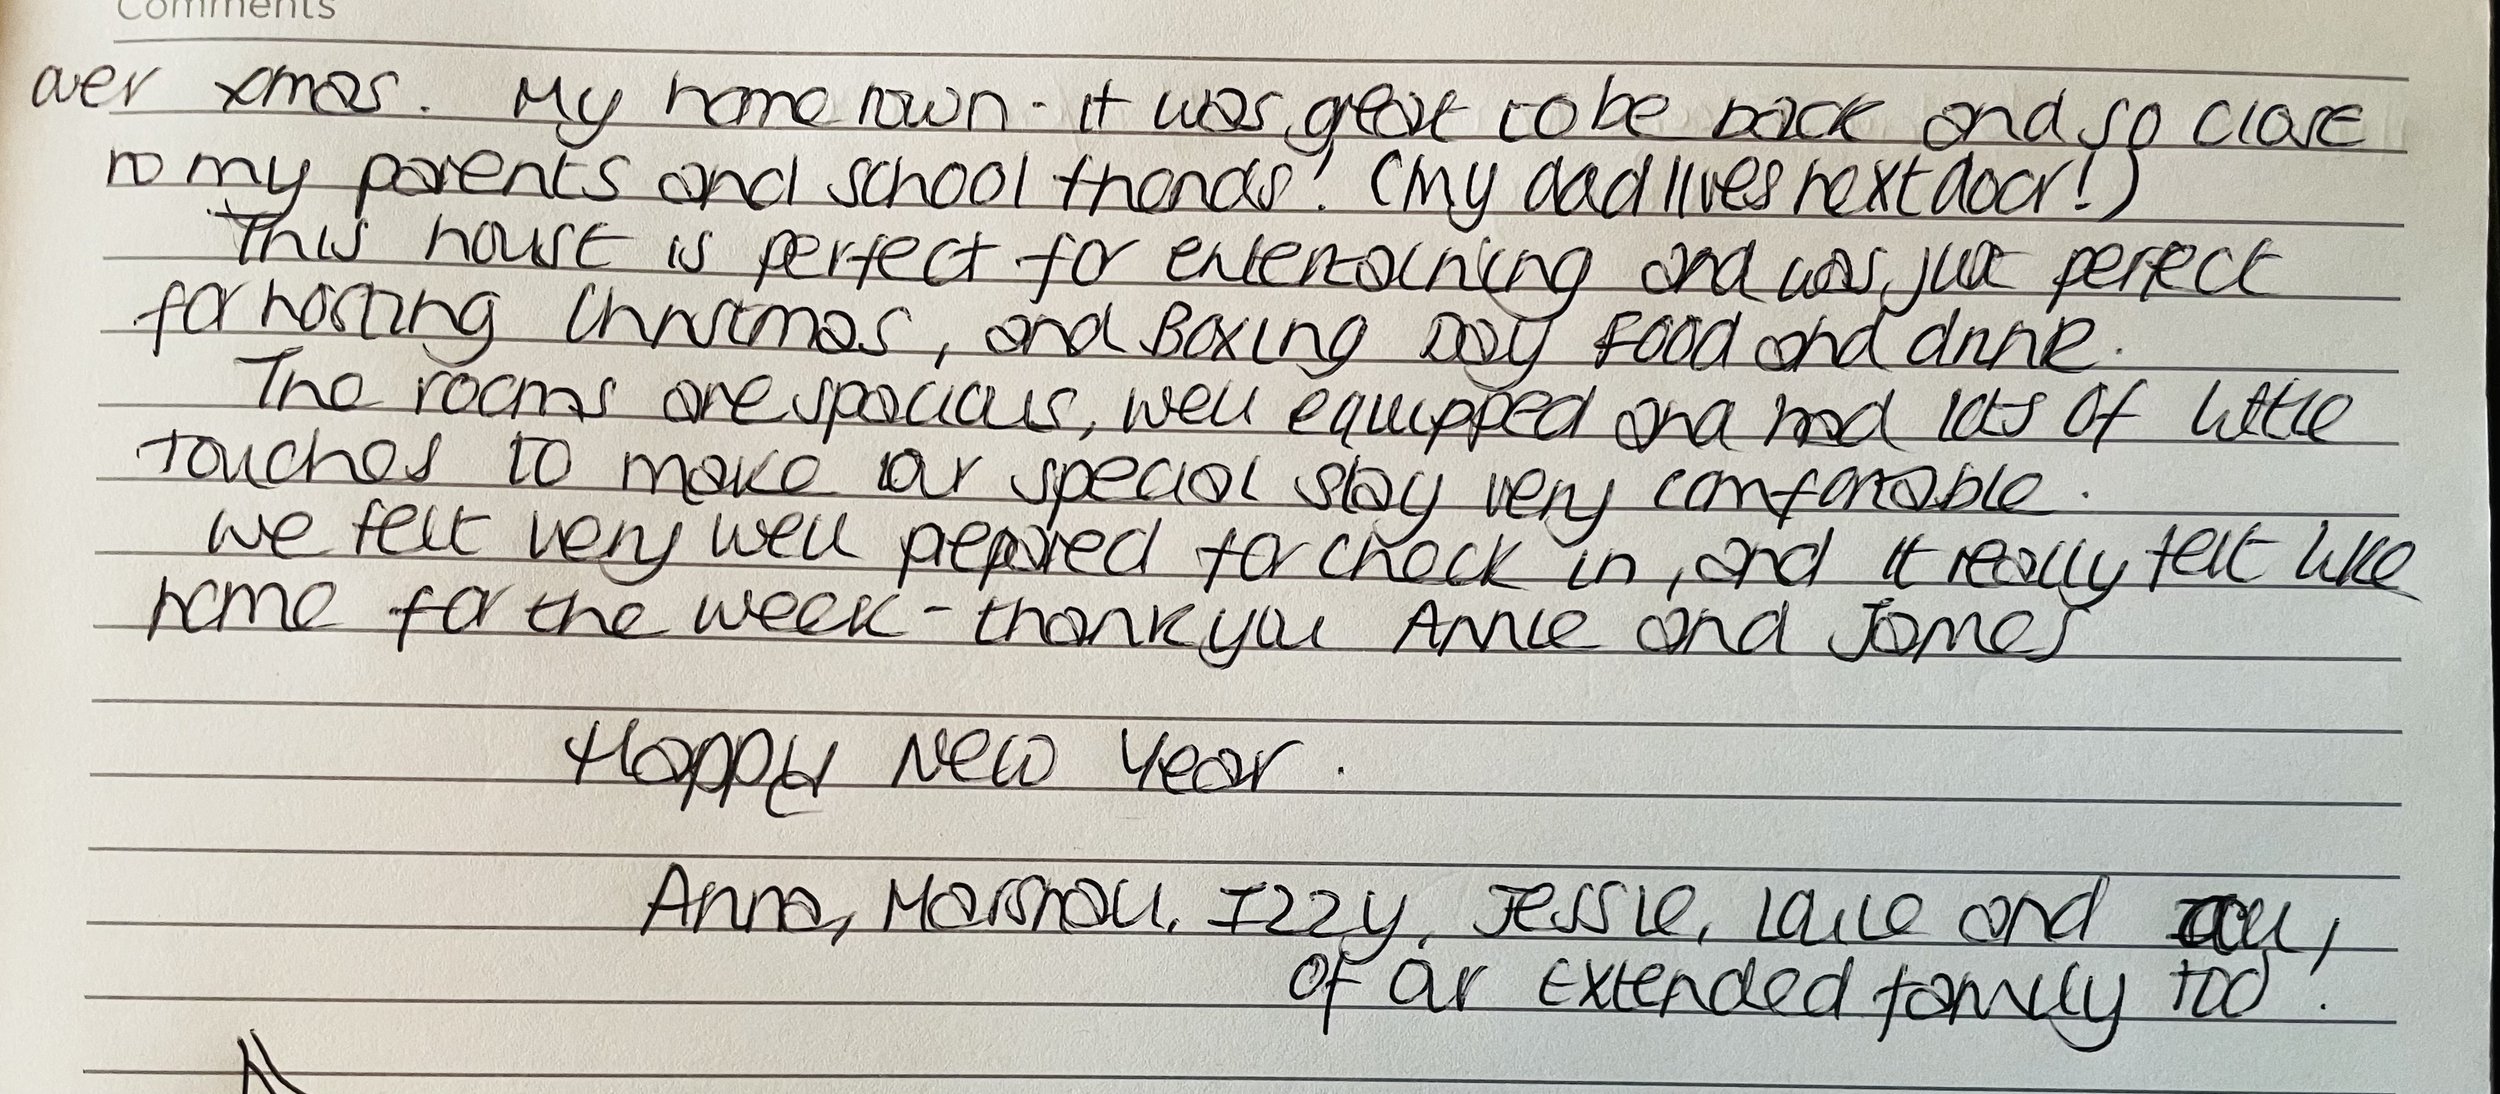 Comments
over xmas. My home town - it was great to be back and so close
to my parents and school friends! (my dad lives next door!)
This house is perfect for entertaining and was just perfect
for hosting Christmas, and Boxing Day food and drink.
The rooms are spacious, well equipped and had lots of little
touches to make our special stay very comfortable.
we felt very well prepared for check in, and it really felt like
home for the week - thank you Annie and James
Happy New Year.
Anna, Marshall, Izzy, Jessie, and all,
of our extended family too.